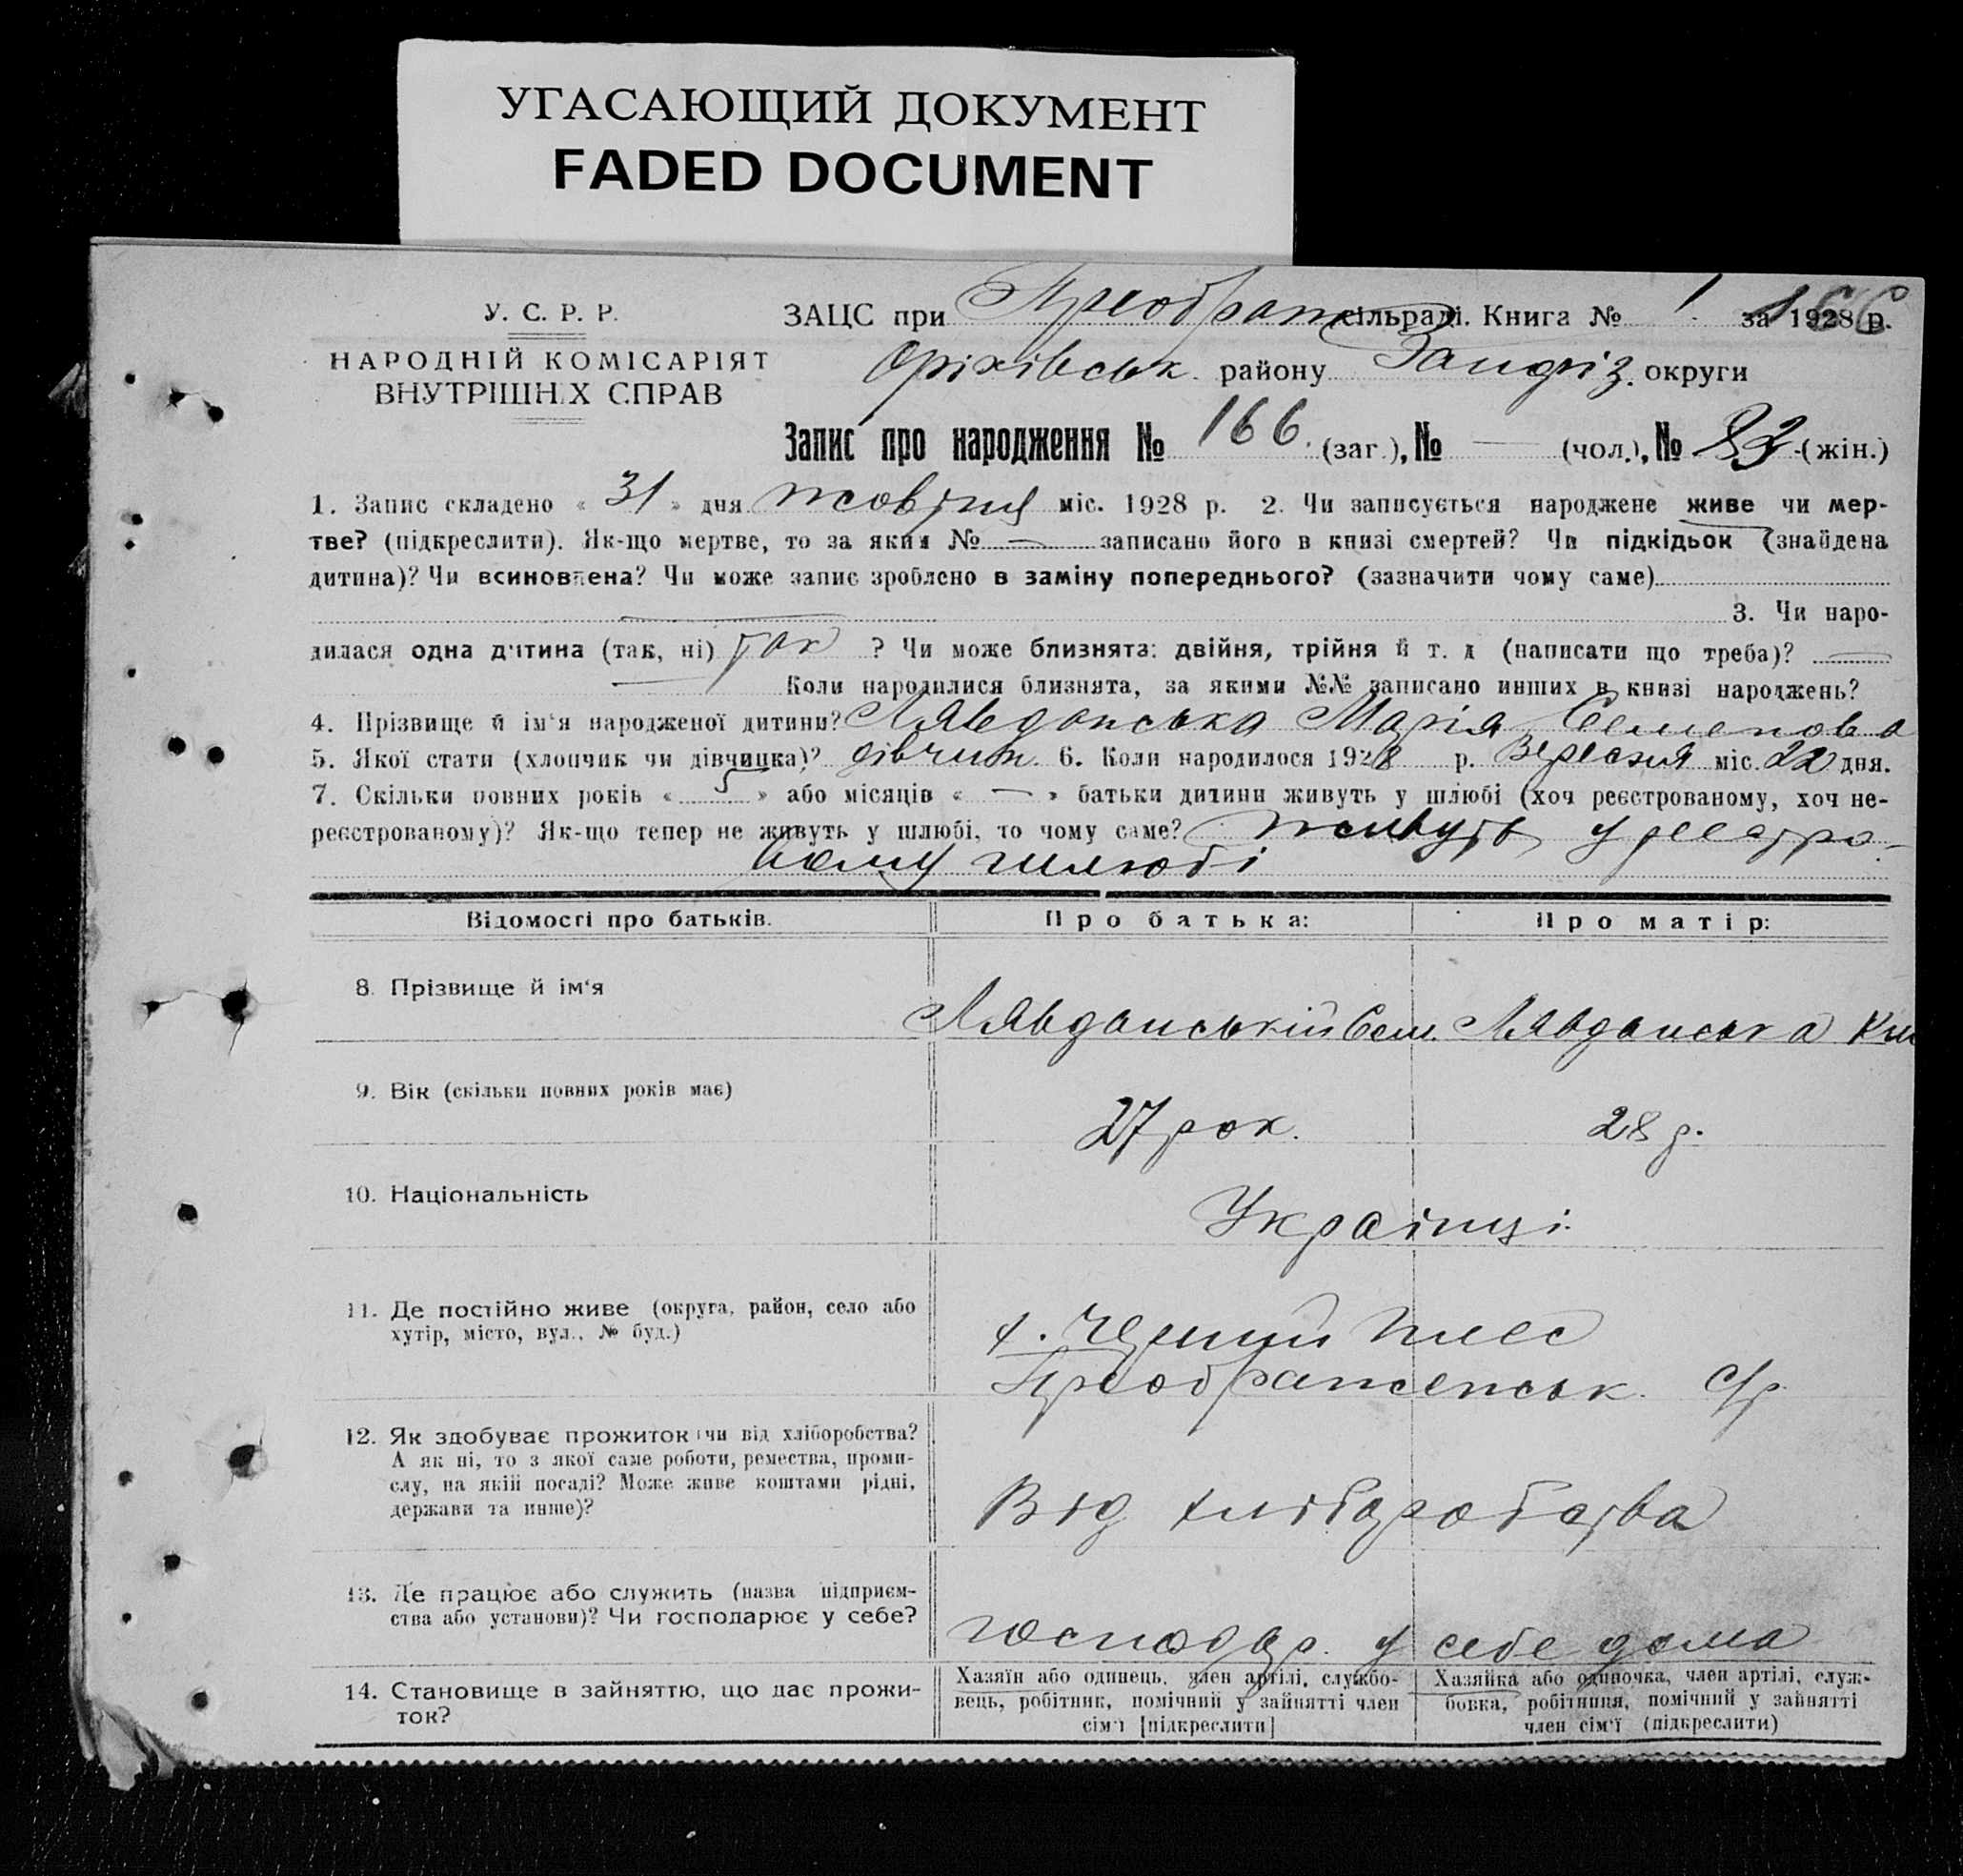 УГАСАЮЩИЙ ДОКУМЕНТ
FADED DOCUMENT
У. С. Р. Р.
НАРОДНІЙ КОМІСАРІЯТ
ВНУТРІШНІХ СПРАВ
ЗАЦС при Преображ сільраді. Книга № 1 за 1928 р.
166
Оріхівськ. району Запоріз. округи
Запис про народження № 166. (заг.), № — (чол.), № 83 (жін.)
1. Запис складено « 31 » дня жовтня міс. 1928 р. 2. Чи записується народжене живе чи мер-
тве? (підкреслити). Як-що мертве, то за яким № — записано його в книзі смертей? Чи підкідьок (знайдена
дитина)? Чи всиновлена? Чи може запис зроблено в заміну попереднього? (зазначити чому саме)
3. Чи наро-
дилася одна дитина (так, ні) так ? Чи може близнята: двійня, трійня й т. д (написати що треба)? —
— Коли народилися близнята, за якими №№ записано инших в книзі народжень?
4. Прізвище й ім'я народженої дитини? Лявданська Марія Семенова
5. Якої стати (хлопчик чи дівчинка)? дівчин. 6. Коли народилося 1928 р. Вересня міс. 22 дня.
7. Скільки повних років « 5 » або місяців « — » батьки дитини живуть у шлюбі (хоч реєстрованому, хоч не-
реєстрованому)? Як-що тепер не живуть у шлюбі, то чому саме? живуть у реєстро-
ваному шлюбі
Відомості про батьків.
Про батька:
Про матір:
8. Прізвище й ім'я
Лявданський Сем.
Лявданська
9. Вік (скільки повних років має)
27 рок.
28 р.
10. Національність
Українці.
11. Де постійно живе (округа, район, село або
хутір, місто, вул., № буд.)
х. Чермий
Преображенськ. с/р
12. Як здобуває прожиток чи від хліборобства?
А як ні, то з якої саме роботи, ремества, проми-
слу, на якій посаді? Може живе коштами рідні,
держави та инше)?
Від хліборобства
13. Де працює або служить (назва підприєм-
ства або установи)? Чи господарює у себе?
господар. у себе дома
14. Становище в зайняттю, що дає прожи-
ток?
Хазяїн або одинець, член артілі, службо-
вець, робітник, помічний у зайнятті член
сім'ї [підкреслити]
Хазяйка або одиночка, член артілі, служ-
бовка, робітниця, помічний у зайнятті
член сім'ї (підкреслити)